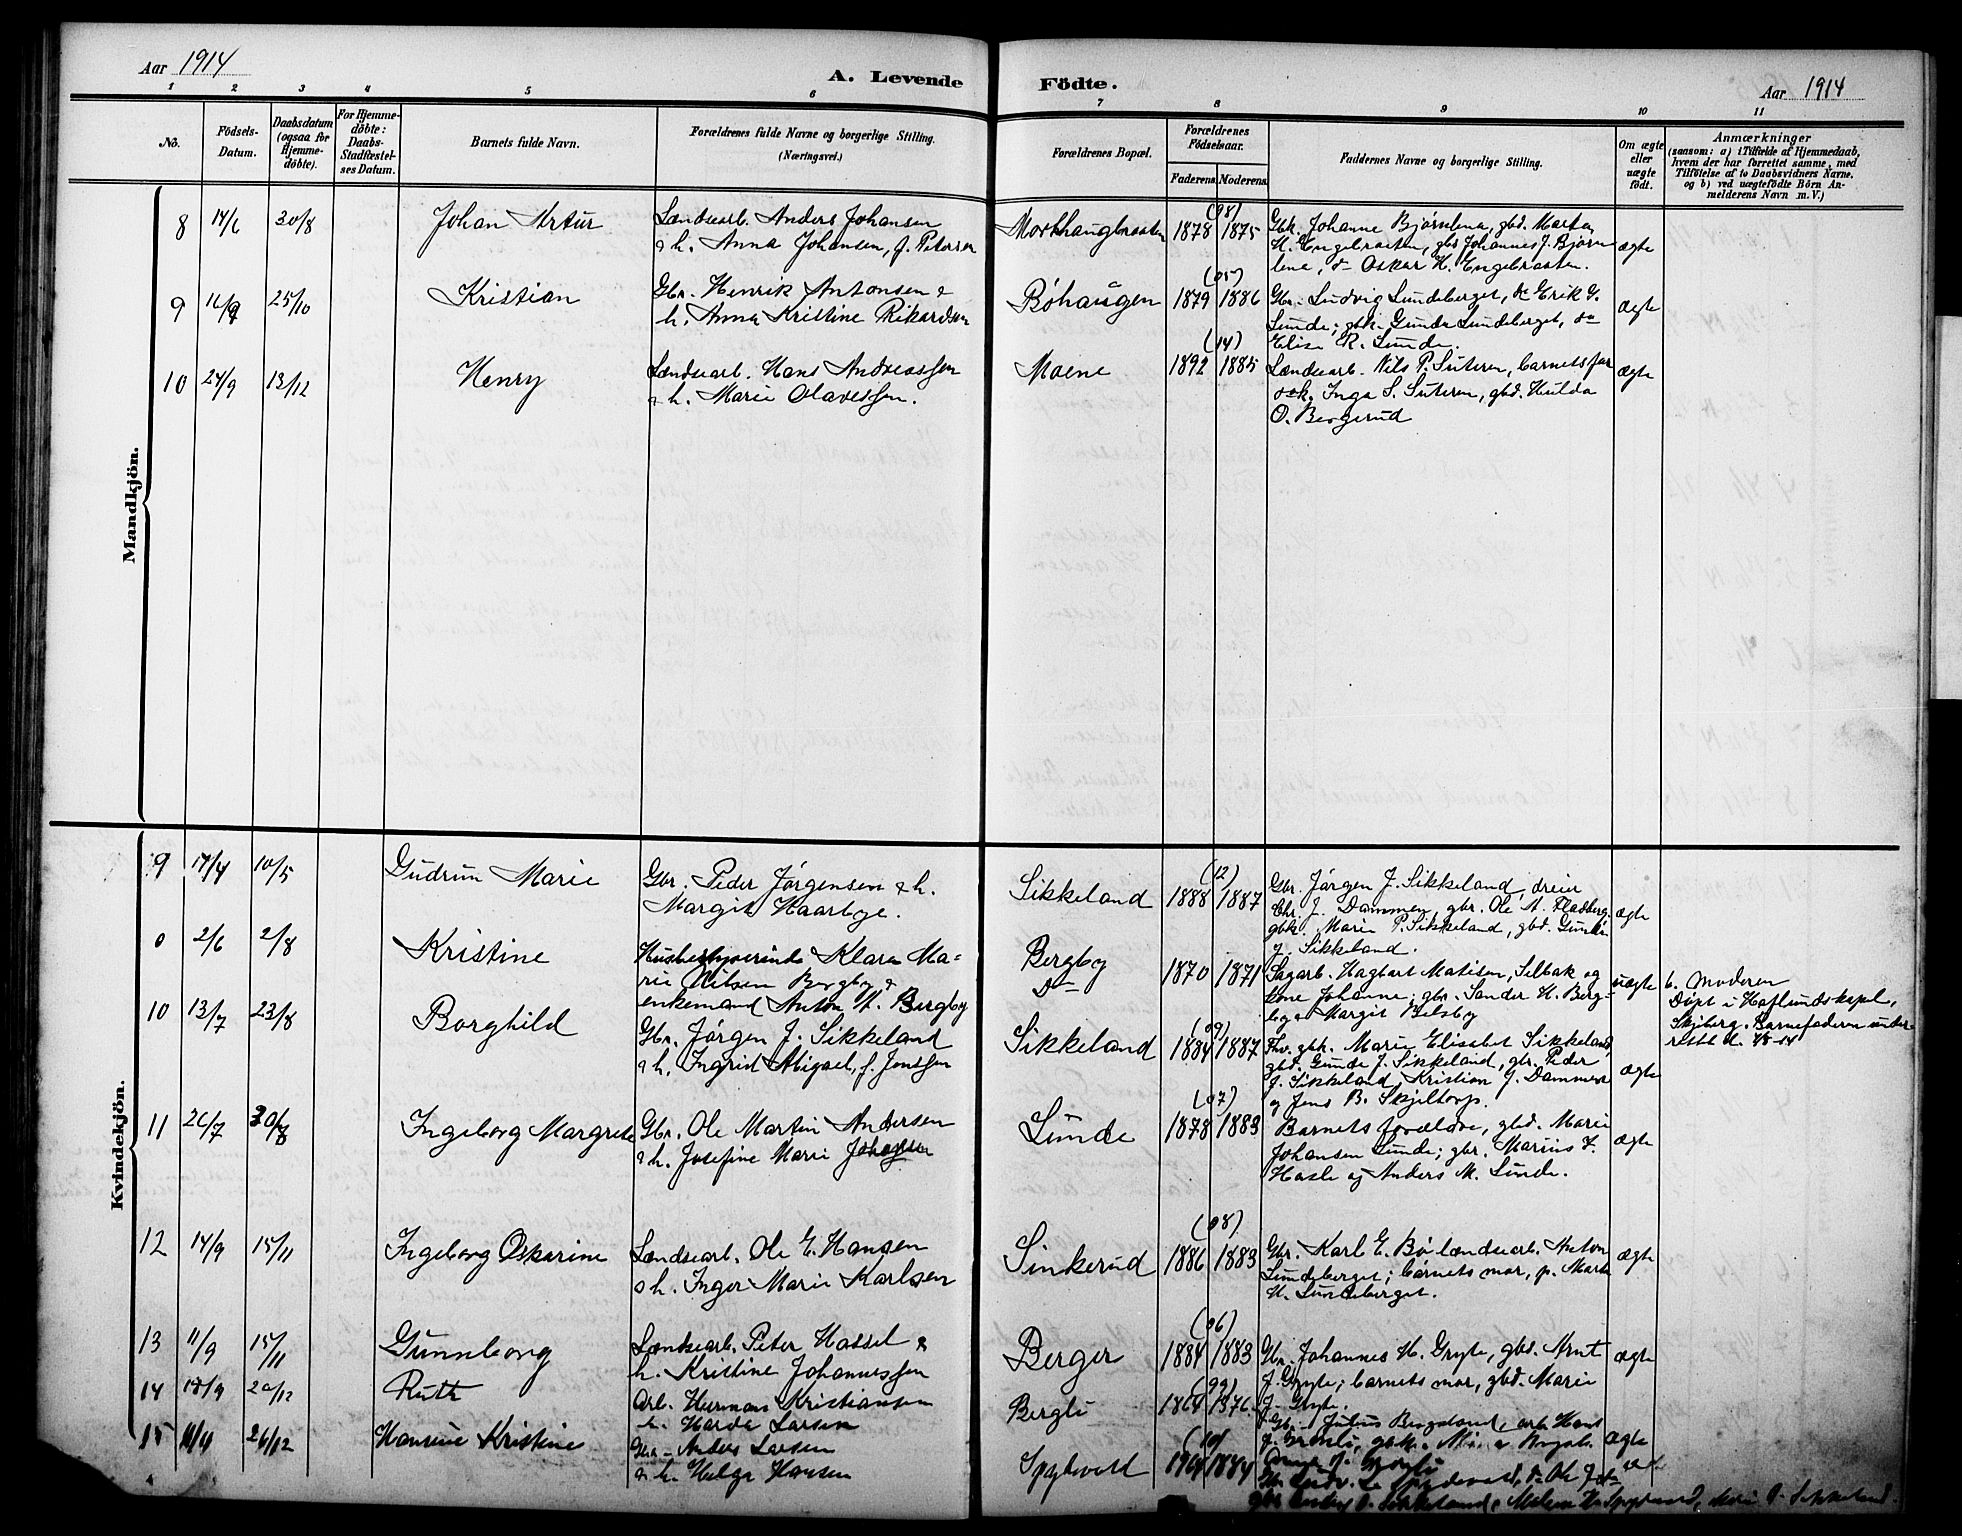 Aar 1914
A. Levende Födte.
Aar 1914
1 2 3 4 5 6 7 8 9 10 11
No.
Födsels-Datum.
Daabsdatum (ogsaa for Hjemmedöbte).
For Hjemmedöbte: Daabs-Stadfæstelses Datum.
Barnets fulde Navn.
Forældrenes fulde Navne og borgerlige Stilling.
(Næringsvei.)
Forældrenes Bopæl.
Forældrenes Födselsaar.
Faderens. Moderens.
Faddernes Navne og borgerlige Stilling.
Om ægte eller uægte födt.
Anmærkninger
(saasom: a) i Tilfælde af Hjemmedaab,
hvem der har forrettet samme, med
Tilföielse af to Daabsvidners Navne,
og b) ved uægtefödte Börn An-
melderens Navn m. V.)
Mandkjön.
8 14/6 30/8 Johan Artur
Landsearb. Anders Johansen
& h. Anna Johansen, f. Peterson
1878 (98) 1875
Gbk. Johanne Bjørnlena, gbd. Marta
H. Engebraaten, gbs Johannes J. Bjørn
lena, do Oskar H. Engebraaten.
ægte
9 25/10 Kristian
Gbr. Henrik Antonsen &
h. Anna Kristine Rikardsen
Bøhaugen 1879 (05) 1886
Gbr. Ludvig Lundeberget, do Erik G.
Lunde; gbk. Gunda Lundeberget, do
Elise R. Lunde.
ægte
10 24/9 13/12 Henry
Landsearb. Hans Andreassen
& h. Marie Olavessen.
Moene 1892 (14) 1885
Landsearb. Nils P. Suteren, barnets far
Inga S. Suteren, gbd. Hulda
O. Bergerud
ægte
Kvindekjön.
9 17/4 10/5 Gudrun Marie
Gbr. Peder Jørgensen & h.
Margit Haarbye.
Sikkeland 1888 (12) 1887
Gbr. Jørgen J. Sikkeland, dreier
Chr. J. Dammen, gbr. Ole A. Fladberg,
gbk. Marie P. Sikkeland, gbd. Gunda
J. Sikkeland.
ægte
0 2/6 2/8 Kristine
Husbestyrerinde Klara Ma=
rie Nilsen Bergby &
enkemand Anton A. Bergby
Bergby
Do
1870 1871
Sagarb. Hagbart Matisen, Selbak og
kone Johanne; gbr. Sander H. Berg=
by Margit Bilsby
uægte
b. Moderen
Døpt i Hafslundskapel,
Skjeberg. Barnefaderen under
10 13/7 23/8 Borghild
Gbr. Jørgen J. Sikkeland
& h. Ingrid Abigael, f. Jensen
Sikkeland 1884 (09) 1887
Fhv. gbk. Marie Elisabet Sikkeland,
gbd. Gunda J. Sikkeland, gbr. Peder
J. Sikkeland, Kristian J. Dammen
og Jens B. Skjeltorp.
ægte
11 26/7 30/8 Ingeborg Margrete
Gbr. Ole Martin Andersen
& h. Josefine Marie Johansen
Lunde 1878 (07) 1883
Barnets forældre, gbd. Marie
Johansen Lunde; gbr. Marius J.
Hasle og Anders M. Lunde.
ægte
12 14/9 15/11 Ingeborg Oskarine
Landsearb. Ole E. Hansen
& h. Inger Marie Karlsen
Sinkerud 1886 (08) 1883
Gbr. Karl E. Bø landsearb. Anton
Lundeberget; barnets mor, p. Marta
H. Lundeberget.
ægte
13 11/9 15/11 Gunnborg
Landsearb. Peter Hassel &
h. Kristine Johannessen
Berger 1884 (06) 1883
Gbr. Johannes H. Gryte, gbs. Arnt
J. Gryte; barnets mor, gbd. Marie
J. Gryte.
ægte
14 20/12 Ruth
Arb. Herman Kristiansen
& h. Harda Larsen
Bergli (99) 1876
Gbr. Julius Bergeland, arb. Hans
ægte
15 26/12 Hansine Kristine
Gbr. Anders Larsen
& h. Helga Hansen
Spydevold 1884